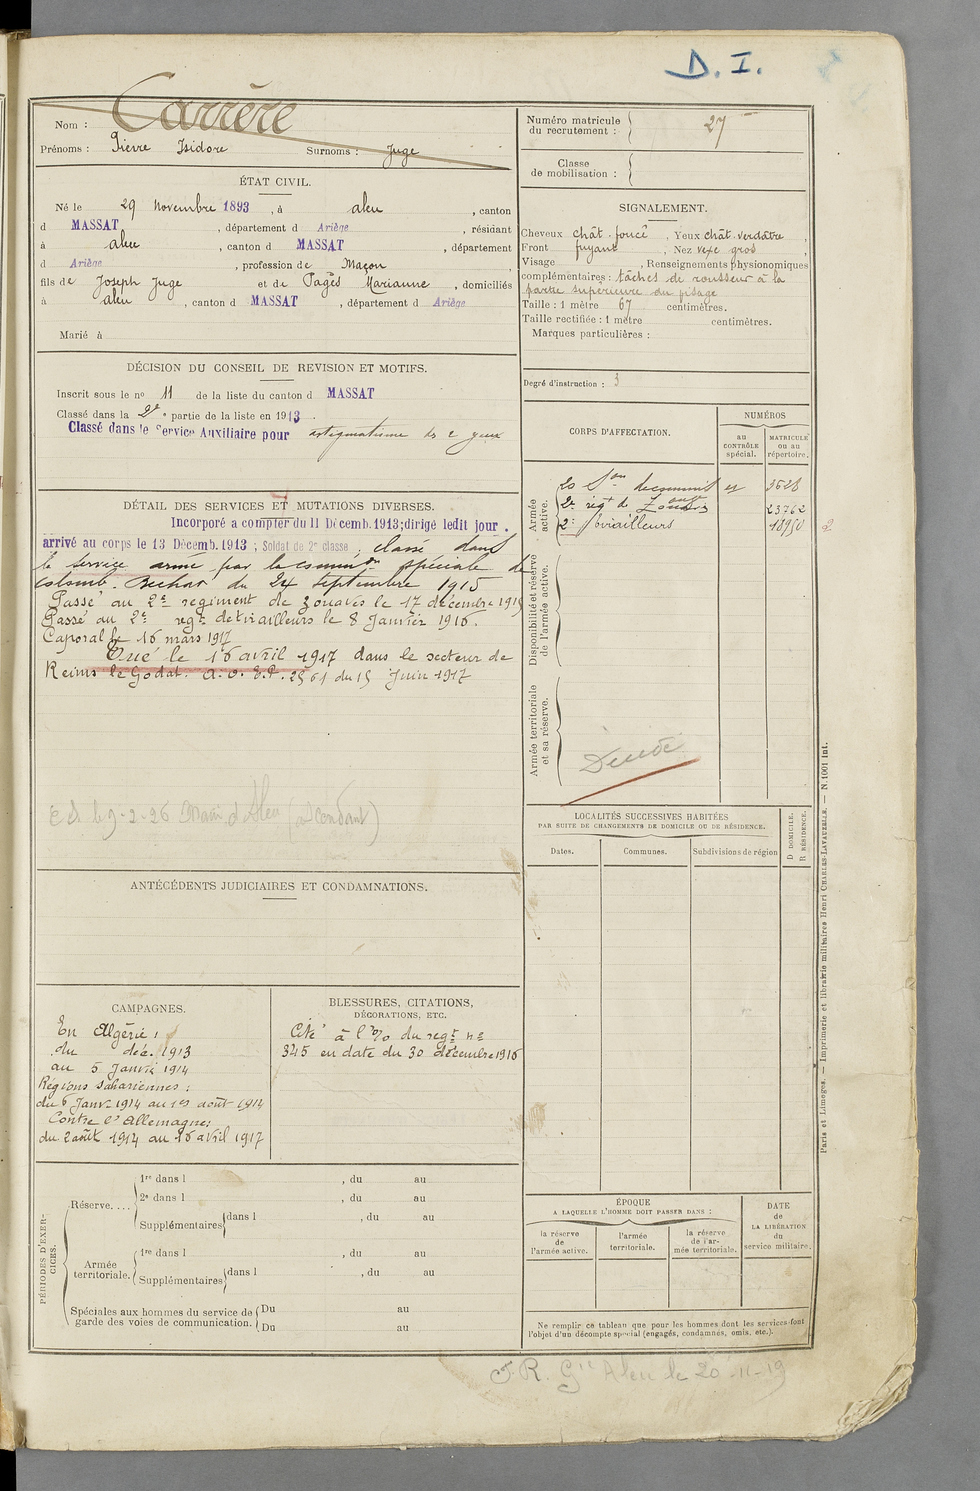 D. I.
Nom : Carrère
Prénoms : Pierre Isidore Surnoms : Juge
ÉTAT CIVIL.
Né le 29 novembre 1893, à aleu, canton
d MASSAT, département d Ariège, résidant
à aleu, canton d MASSAT, département
d Ariège, profession de Maçon,
fils de Joseph Juge et de Pagès Marianne, domiciliés
à aleu, canton d MASSAT, département d Ariège
Marié à
DÉCISION DU CONSEIL DE REVISION ET MOTIFS.
Inscrit sous le nº 11 de la liste du canton d MASSAT
Classé dans la 2e partie de la liste en 1913.
Classé dans le Service Auxiliaire pour astigmatisme des 2 yeux
DÉTAIL DES SERVICES ET MUTATIONS DIVERSES.
Incorporé a compter du 11 Décemb. 1913; dirigé ledit jour.
arrivé au corps le 13 Décemb. 1913 ; Soldat de 2e classe ; classé dans
le service armé par la common spéciale de
Colomb. Bechar du 24 septembre 1915
Passé au 2e régiment de zouaves le 17 décembre 1915
Passé au 2e regt de tirailleurs le 8 Janvier 1916.
Caporal le 16 mars 1917
Tué le 16 avril 1917 dans le secteur de
Reims le Godat. a. o. E.P. 2561 du 15 Juin 1917
le 9-2-26 d'Aleu
ANTÉCÉDENTS JUDICIAIRES ET CONDAMNATIONS.
CAMPAGNES.
En Algérie :
du déc. 1913
au 5 Janvie 1914
Régions sahariennes :
du 6 Janv. 1914 au 1er août 1914
Contre l'Allemagne :
du 2 août 1914 au 16 avril 1917
BLESSURES, CITATIONS,
DÉCORATIONS, ETC.
Cité à l'o/o du regt nº
345 en date du 30 décembre 1916
PÉRIODES D'EXERCICES.
Réserve....
1re dans l , du au
2e dans l , du au
Supplémentaires dans l , du au
Armée
territoriale.
1re dans l , du au
Supplémentaires dans l , du au
Spéciales aux hommes du service de
garde des voies de communication.
Du au
Du au
Numéro matricule
du recrutement : 27
Classe
de mobilisation :
SIGNALEMENT.
Cheveux chât. foncé, Yeux chât. verdâtre,
Front fuyant, Nez vexe gros
Visage , Renseignements physionomiques
complémentaires : tâches de rousseur à la
partie supérieure du visage
Taille : 1 mètre 67 centimètres.
Taille rectifiée : 1 mètre centimètres.
Marques particulières :
Degré d'instruction : 3
CORPS D'AFFECTATION.
NUMÉROS
au
CONTRÔLE
spécial.
MATRICULE
ou au
répertoire.
Armée
active.
20 Son de commis et 3628
2e regt de Zouaves 23762
2e tirailleurs 18950 2
Disponibilité et réserve
de l'armée active.
Armée territoriale
et sa réserve.
Décédé
LOCALITÉS SUCCESSIVES HABITÉES
PAR SUITE DE CHANGEMENTS DE DOMICILE OU DE RÉSIDENCE.
Dates.
Communes.
Subdivisions de région
D DOMICILE.
R RÉSIDENCE.
ÉPOQUE
A LAQUELLE L'HOMME DOIT PASSER DANS :
la réserve
de
l'armée active.
l'armée
territoriale.
la réserve
de l'ar-
mée territoriale.
DATE
de
LA LIBÉRATION
du
service militaire.
Ne remplir ce tableau que pour les hommes dont les services font
l'objet d'un décompte spécial (engagés, condamnés, omis, etc.).
Paris et Limoges. — Imprimerie et librairie militaires Henri CHARLES-LAVAUZELLE. — N. 1001 int.
F. R. Gie Aleu le 20-11-19